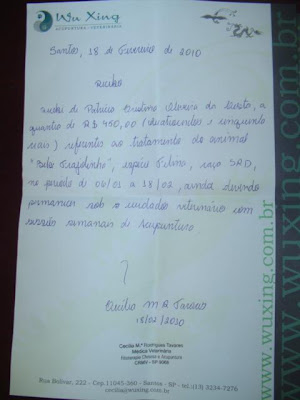 Wu Xing
ACUPUNTURA - VETERINÁRIA
www.wuxing.com.br
Santos, 18 de Fevereiro de 2010
Recibo
Recebi de Patrícia Cristina da a
quantia de R$ 450,00 (quatrocentos e cinquenta
reais) referentes ao tratamento do animal
espécie Felina, raça SRD,
no período de 04/01 a 18/02, ainda devendo
permanecer sob os cuidados veterinário com
sessões semanais de Acupuntura.
Cecília M R Tavares
18/02/2010
Cecília M.ª Rodrigues Tavares
Médica Veterinária
CRMV - SP
Rua Bolívar, 222 - Cep.11045-360 - Santos - SP - tel.:(13) 3234-7276
cecilia@wuxing.com.br
www.wuxing.com.br